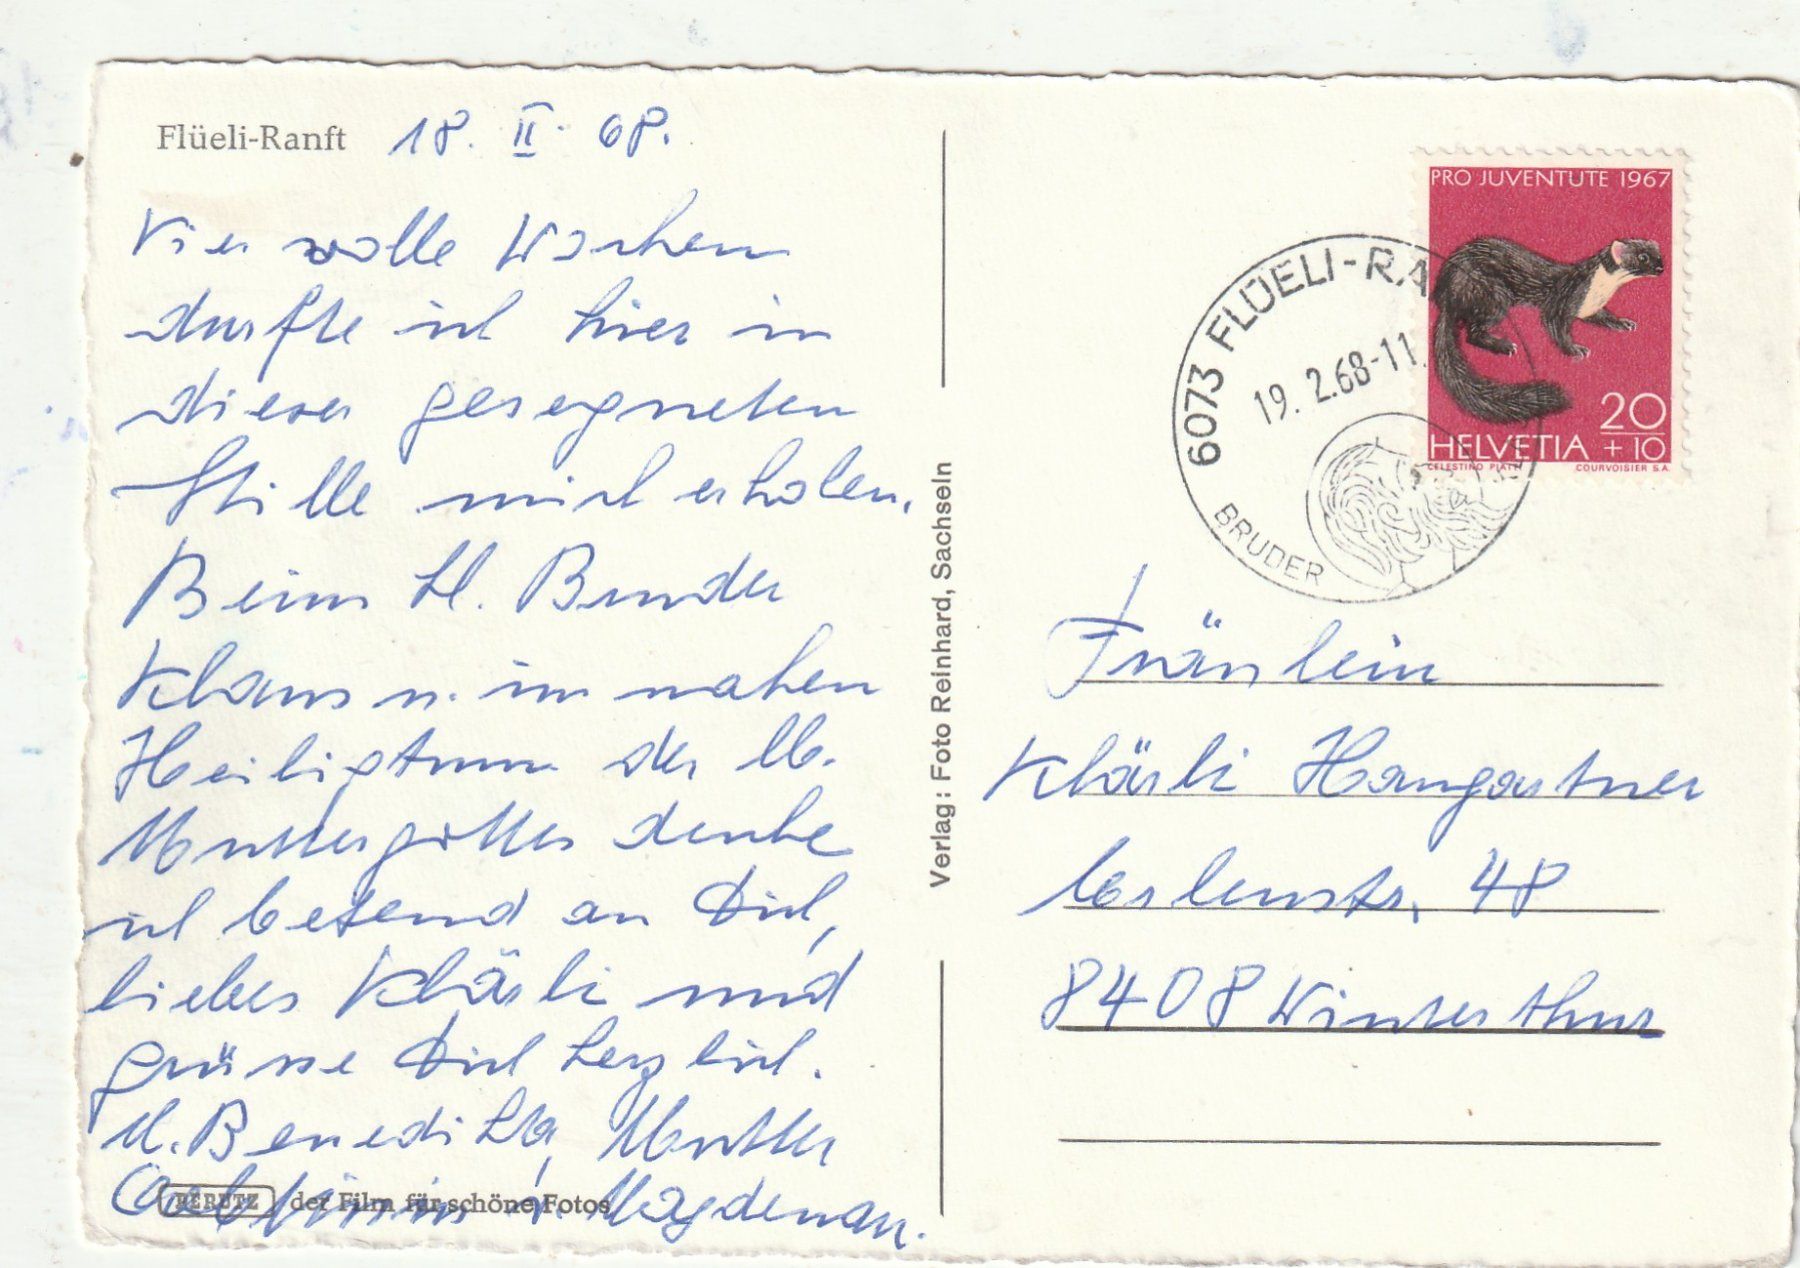 Flüeli-Ranft 18. II. 68.
Vier volle Wochen
durfte ich hier in
dieser gesegneten
Stille mich erholen.
Beim hl. Bruder
Klaus u. im nahen
Heiligtum der lb.
Muttergottes denke
ich betend an Dich,
liebes Klärli und
grüsse Dich herzlich.
M. Benedikta, Mutter
Magdenau.
PERUTZ der Film für schöne Fotos
Verlag: Foto Reinhard, Sachseln
PRO JUVENTUTE 1967
20
+10
HELVETIA
CELESTINO PIATTI COURVOISIER S.A.
6073 FLÜELI-RA
19. 2.68-11
BRUDER
Fräulein
Klärli Hangartner
48
8408 Winterthur